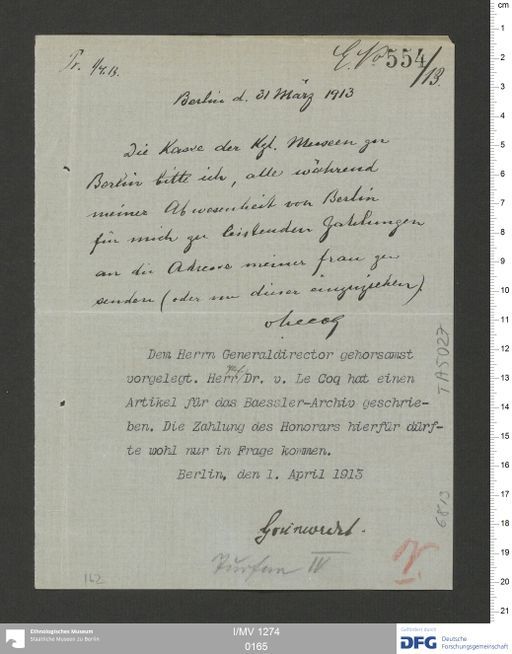 Pr. 1/4.13.
E. No 554/13.
Berlin d. 31 März 1913
Die Kasse der Kgl. Museen zu
Berlin bitte ich, alle während
meiner Abwesenheit von Berlin
für mich zu leistenden Zahlungen
an die Adresse meiner Frau zu
senden (oder von dieser einzuziehen).
v Lecoq
Dem Herrn Generaldirector gehorsamst
vorgelegt. Herr Dr. v. Le Coq hat einen
Artikel für das Baessler-Archiv geschrie-
ben. Die Zahlung des Honorars hierfür dürf-
te wohl nur in Frage kommen.
Berlin, den 1. April 1913
Grünwedel.
Turfan IV
162
TA 5027
6813
Ethnologisches Museum
Staatliche Museen zu Berlin
I/MV 1274
0165
Gefördert durch
DFG Deutsche
Forschungsgemeinschaft
cm
1
2
3
4
5
6
7
8
9
10
11
12
13
14
15
16
17
18
19
20
21